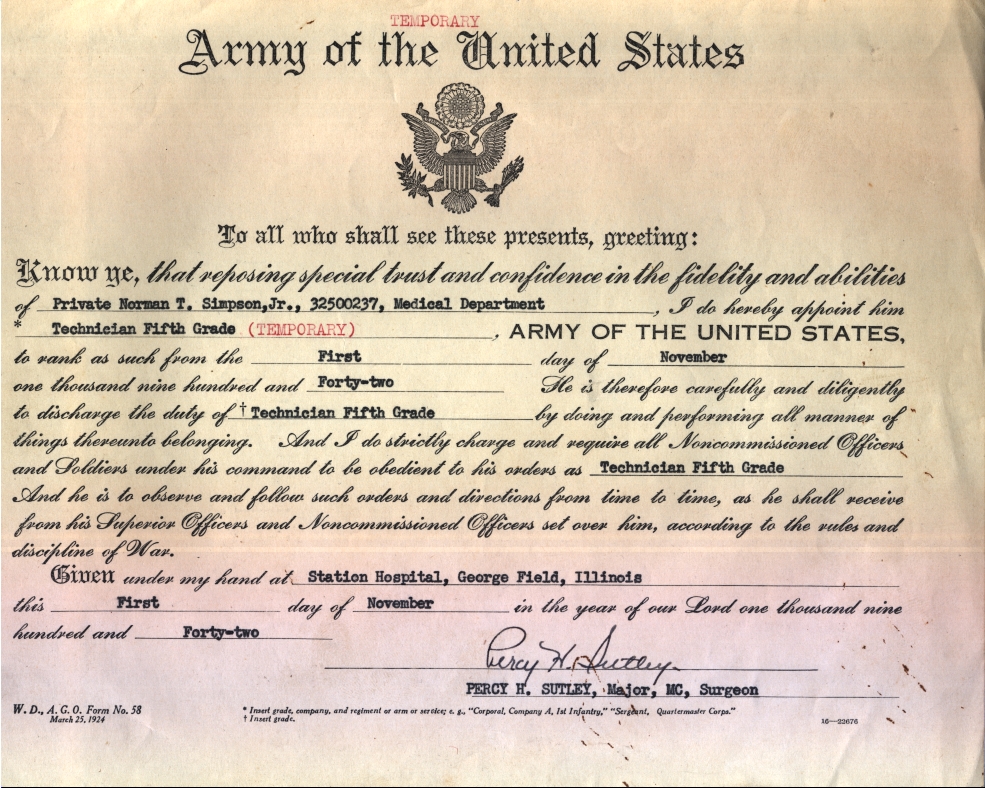 TEMPORARY
Army of the United States
To all who shall see these presents, greeting:
Know ye, that reposing special trust and confidence in the fidelity and abilities
of Private Norman T. Simpson,Jr., 32500237, Medical Department, I do hereby appoint him
* Technician Fifth Grade (TEMPORARY), ARMY OF THE UNITED STATES,
to rank as such from the First day of November
one thousand nine hundred and Forty-two He is therefore carefully and diligently
to discharge the duty of † Technician Fifth Grade by doing and performing all manner of
things thereunto belonging. And I do strictly charge and require all Noncommissioned Officers
and Soldiers under his command to be obedient to his orders as Technician Fifth Grade
And he is to observe and follow such orders and directions from time to time, as he shall receive
from his Superior Officers and Noncommissioned Officers set over him, according to the rules and
discipline of War.
Given under my hand at Station Hospital, George Field, Illinois
this First day of November in the year of our Lord one thousand nine
hundred and Forty-two
Percy H. Sutley
PERCY H. SUTLEY, Major, MC, Surgeon
W. D., A. G. O. Form No. 58
March 25, 1924
* Insert grade, company, and regiment or arm or service; e. g., "Corporal, Company A, 1st Infantry," "Sergeant, Quartermaster Corps."
† Insert grade.
16—22676